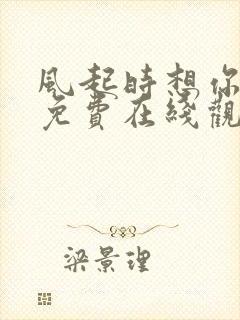 風起時想你
免費在綫觀
梁景理